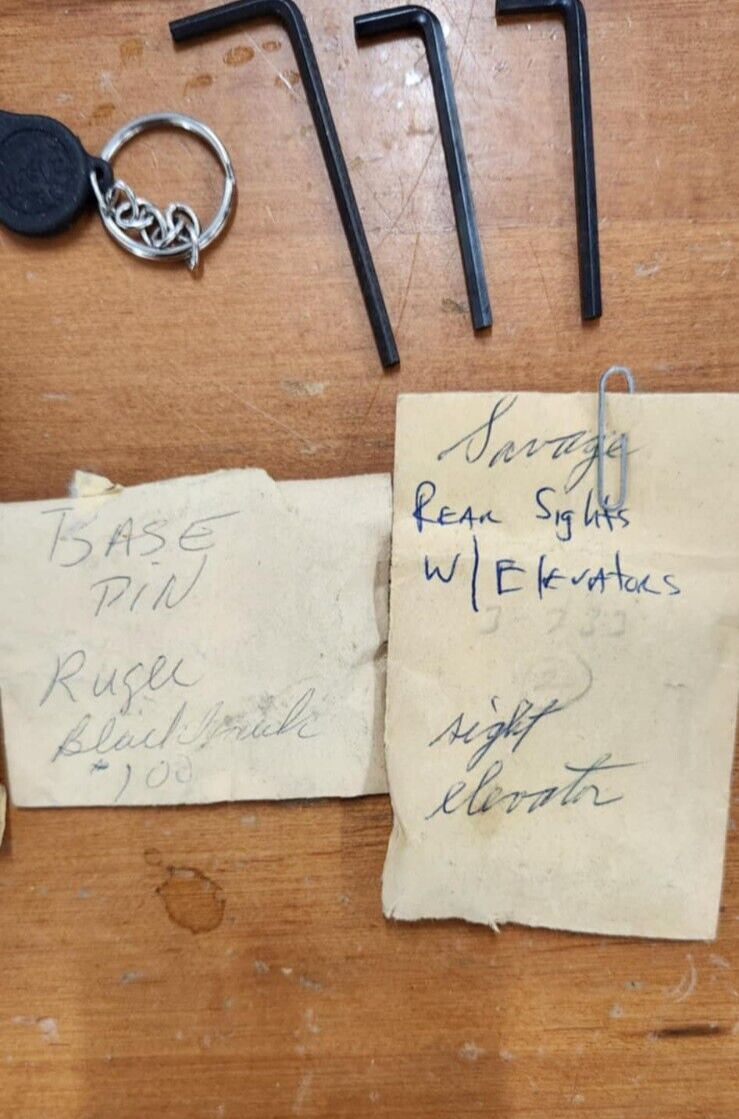 BASE
PIN
Ruger
Blackhawk
*100
Savage
REAR Sights
W/ElEvAtoRs
sight
elevator